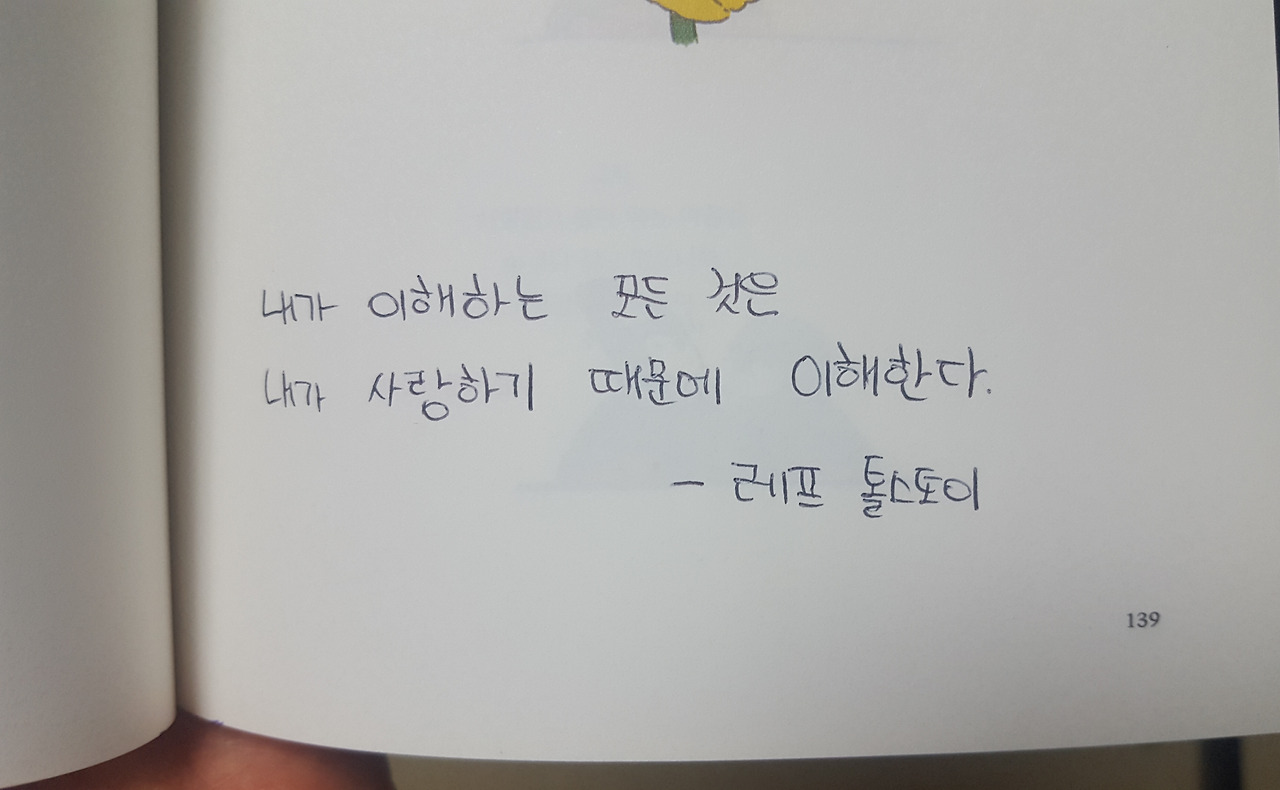 내가 이해하는 모든 것은
내가 사랑하기 때문에 이해한다.
- 레프 톨스토이
139